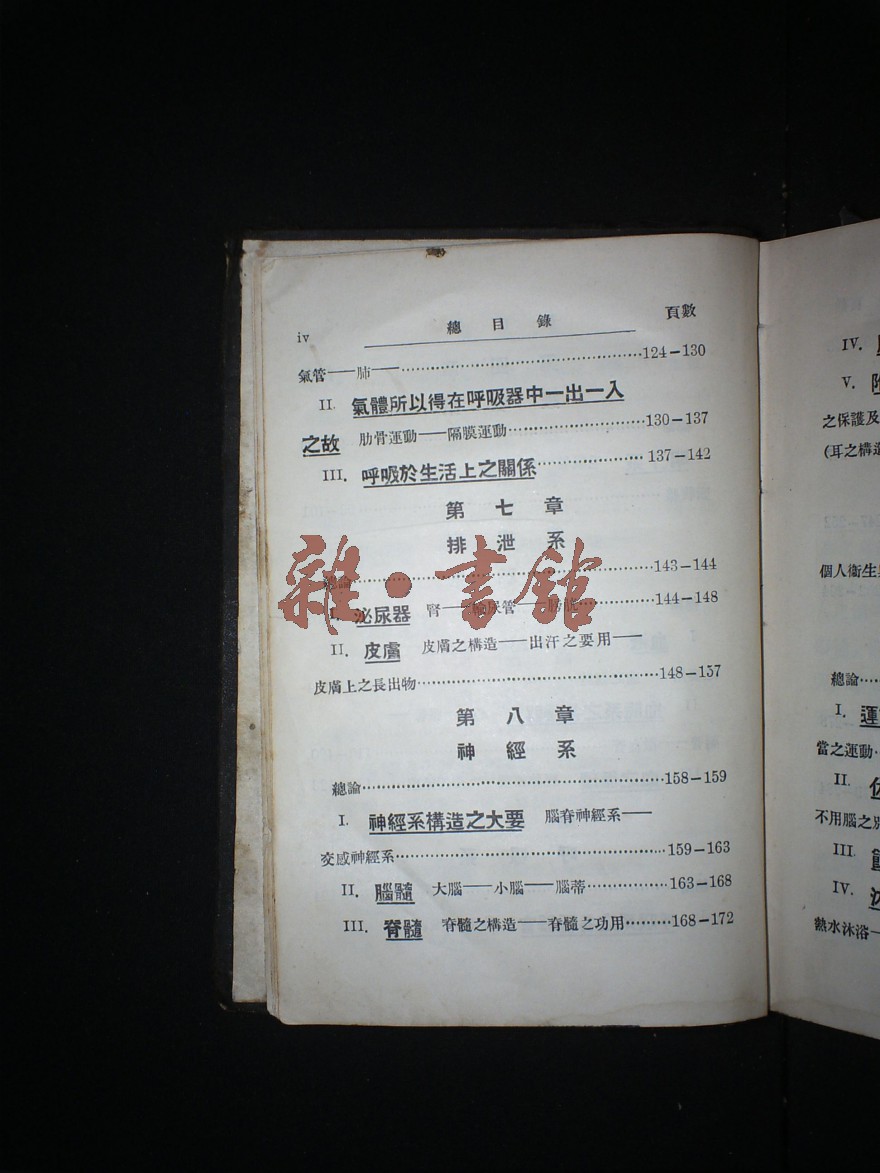 iv 總目錄 頁數
氣管——肺——……124—130
II. 氣體所以得在呼吸器中一出一入
之故 肋骨運動——隔膜運動……130—137
III. 呼吸於生活上之關係……137—142
第七章
排泄系
總論……143—144
I. 泌尿器 腎——輸尿管——膀胱……144—148
II. 皮膚 皮膚之構造——出汗之要用——
皮膚上之長出物……148—157
第八章
神經系
總論……158—159
I. 神經系構造之大要 腦脊神經系——
交感神經系……159—163
II. 腦髓 大腦——小腦——腦蒂……163—168
III. 脊髓 脊髓之構造——脊髓之功用……168—172
雜·書館
IV.
V.
之保護及
(耳之構造
個人衞生
總論……
I. 運
當之運動
II.
不用腦之
III.
IV.
熱水沐浴—